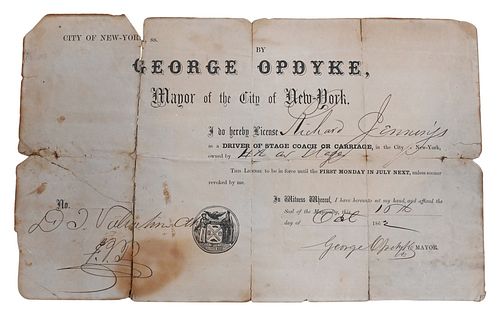 CITY OF NEW-YORK, ss.
BY
GEORGE OPDYKE,
Mayor of the City of New-York.
I do hereby License Richard Jennings
as a DRIVER OF STAGE COACH OR CARRIAGE, in the City of New-York,
owned by
THIS LICENSE to be in force until the FIRST MONDAY IN JULY NEXT, unless sooner
revoked by me.
In Witness Whereof, I have hereunto set my hand, and affixed the
No.
Seal of the Mayoralty, this 15th
D. T. Valentine
day of Oct 1862
George Opdyke MAYOR.